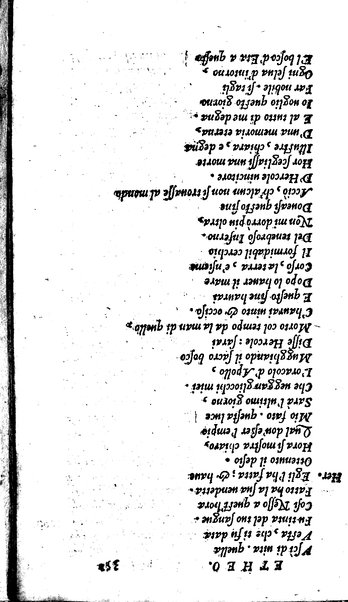 ETHEO. 352
Vscì di vita. quella
Vesta, che ti fù data
Fu tinta del suo sangue.
Così Nesso quest'hora
Fatto hà la sua uendetta.
Her. Egli l'hà fatta; & haue
Ottenuto il desio.
Hora si mostra chiaro,
Qual dou'esser l'empio
Mio fato. questa luce
Sarà l'ultimo giorno,
Che ueggan gliocchi miei.
L'oracolo d'Apollo,
Mugghiando il sacro bosco
Disse Hercole: sarai
Morto col tempo da la man di quello,
C'haurai uinto & occiso.
E questo fine haurai
Dopo l'hauer il mare
Corso, la terra, e'nsieme
Il formidabil cerchio
Del tenebroso Inferno.
Non mi dorrò più oltra,
Doueasi questo fine
Acciò, ch'alcun non si trouasse al mondo
D'Hercole uincitore.
Hor scegliasi una morte
Illustre, chiara, e degna
D'una memoria eterna,
E al tutto di me degna.
Io uoglio questo giorno
Far nobile. si tagli
Ogni selua d'intorno,
E'l bosco d'Eta a questo